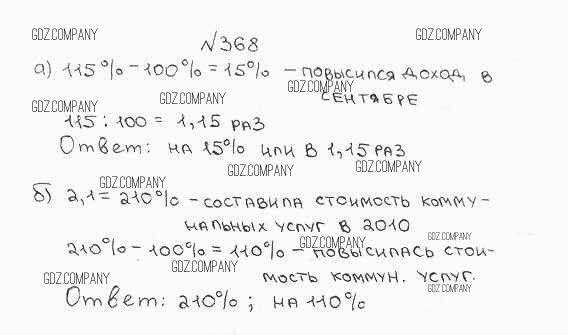 GDZ.COMPANY GDZ.COMPANY
№368
а) 115% - 100% = 15% - повысился доход в
GDZ.COMPANY
сентябре
GDZ.COMPANY GDZ.COMPANY
115 : 100 = 1,15 раз
Ответ: на 15% или в 1,15 раз
GDZ.COMPANY GDZ.COMPANY
GDZ.COMPANY
б) 2,1 = 210% - составила стоимость комму-
нальных услуг в 2010
GDZ.COMPANY GDZ.COMPANY
210% - 100% = 110% - повысилась стои-
GDZ.COMPANY
мость коммун. услуг.
GDZ.COMPANY GDZ.COMPANY
Ответ: 210% ; на 110%